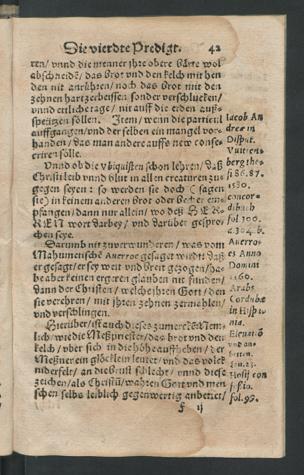 Die vierdte Predigt. 42
ren/ vnnd die menner ihre obere bärte wol
abschneidē/ das brot vnd den kelch mit hen
den nit anrühren/ noch das brot mit den
zehnen hartzerbeissen sonder verschlucken/
vnnd ettliche tage/ nit auff die erden auß-
speitzen söllen. Item/ wenn die particul
auffgangen/ vnd der selben ein mangel vor-
handen/ das man andere auffs new conse-
crirn solle.
Vnnd ob die Vbiquisten schon lehren/ daß
Christi leib vnnd blut in allen creaturen zu-
gegen seyen: so werden sie doch (sagen
sie) in keinem anderen brot oder becher em-
pfangen/ dann nur allein/ wo deß HER-
REN wort darbey/ vnd darüber gespro-
chen seye.
Darumb nit zuverwundern/ was vom
Mahumetische Auerroe gesagt wirdt/ daß
er gesagt/ er sey weit vnd breit gezogen/ ha-
be aber keinen ergeren glauben nit funden/
dann der Christen/ welche ihren Gott/ den
sie verehren/ mit ihren zehnen zermahlen/
vnd verschlingen.
Hierüber ist auch dieses zumercken/ Nem-
lich/ wie die Meßpriester/ das brot vnd den
kelch/ vber sich in die höhe auffheben/ der
Meßner ein glöcklein leutet/ vnd das volck
niderfelt/ an die brust schlecht/ vnnd diese
zeichen/ als Christū/ wahren Gott vnd men
schen selbs leiblich gegenwertig anbettet/
f ij
Iacob An
dreæ in
Disput.
Wittenberg
fol 100.
Auerro-
es Anno
Domini
1160.
Arabs
Cordubæ
in Hispa-
nia.
fol. 95.